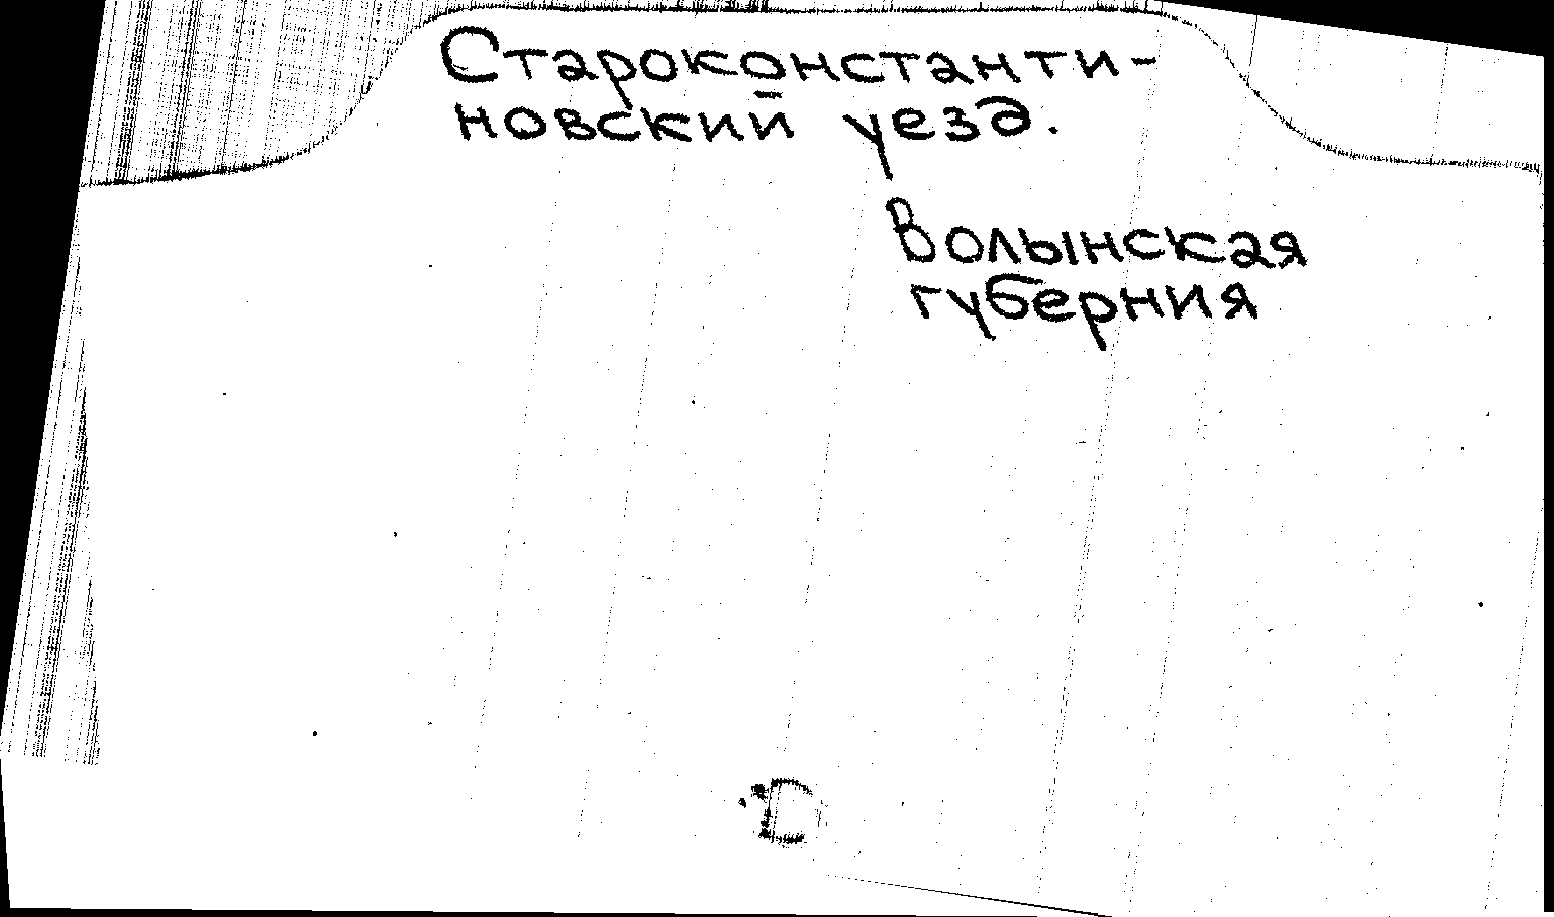 Староконстанти-
новский уезд.
Волынская
губерния